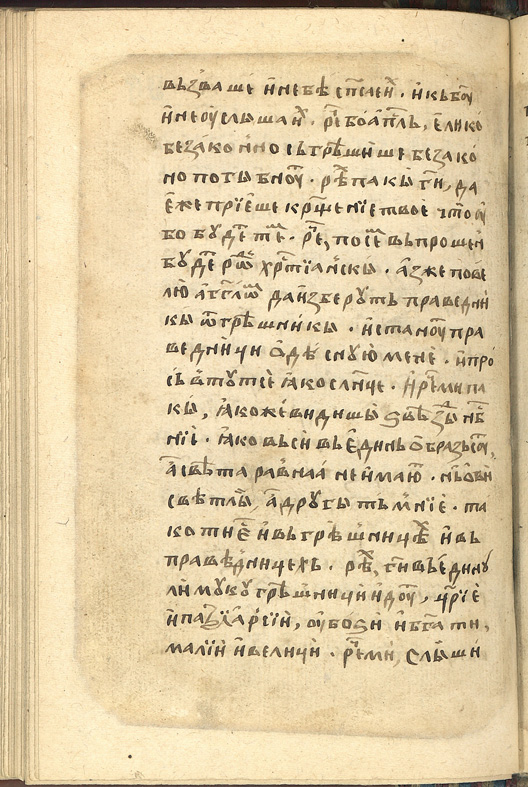 възва ше и небѣ спсеиⷩ҇. и къ бꙋ
и не ѹслыша иⷯ. рⷱ҇е бо апⷭ҇лъ, елико
беꙁакон̾но съгрѣшише беꙁако
но погыбнꙋⷮ. рѣⷯ пакы гⷭ҇и, да
еже прїеше крщенїе твое что ѹ
бо бꙋдеⷮ тѣⷨ. рⷱ҇е, по сеⷨ въпрошен
бꙋдеⷮ рѡⷣ хрⷭ҇тїан̾скы. аꙁ же пове
лю аггⷧ҇ѡⷨ да иꙁберꙋть праведни
кы ѿ грѣшникы. и станꙋⷮ пра
ведничи ѡдеснꙋю мене. и про
свѣтетсе ꙗко слн҃це. и рⷱ҇е ми па
кы, ꙗкоже видишы ѕвѣꙁды нб҃
нїе. ꙗко въси въ единь ѡбраꙁь сꙋⷮ,
а свѣта рав̾на не имаюⷮ. нь ѡви
свѣтлы, а дрꙋгы тьм̾нїе. та
ко тиⷤ е и въ грѣшничѣⷯ и въ
праведничехь. рѣⷯ, гⷭ҇и въ единꙋ
ли мꙋкꙋ грѣшничи идꙋⷮ, цр҃їе
и пат̾рїарсїи, ѹбоѕи и бг҃ати,
малїи и величи. рⷱ҇е ми, слыши